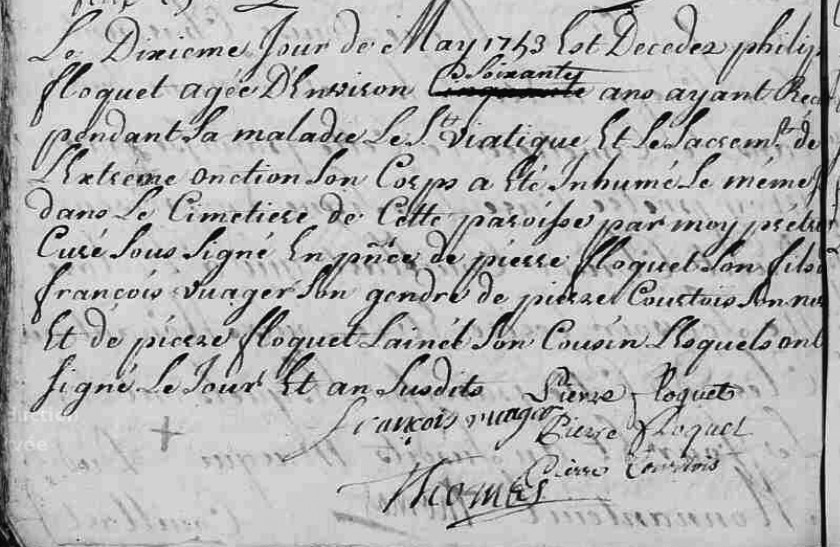 Le Dixieme Jour de May 1753 Est Decedez philip
floquet agée D'Environ Soixante cinquante ans ayant Rec
pendant sa maladie Le St Viatique Et Le Sacremt. de
L'Extrême onction Son Corps a Eté Inhumé Le même
dans Le Cimetiere de Cette paroisse par moy prêtre
Curé Sous Signé En pñce de pierre floquet Son fils
françois vuager Son gendre de pierre Courtois Son ne
Et de pierre floquet Lainét Son Cousin Lesquels ont
signé Le Jour Et an Susdits Pierre floquet
françois vuager Pierre floquet
Pierre Courtois
Thomes